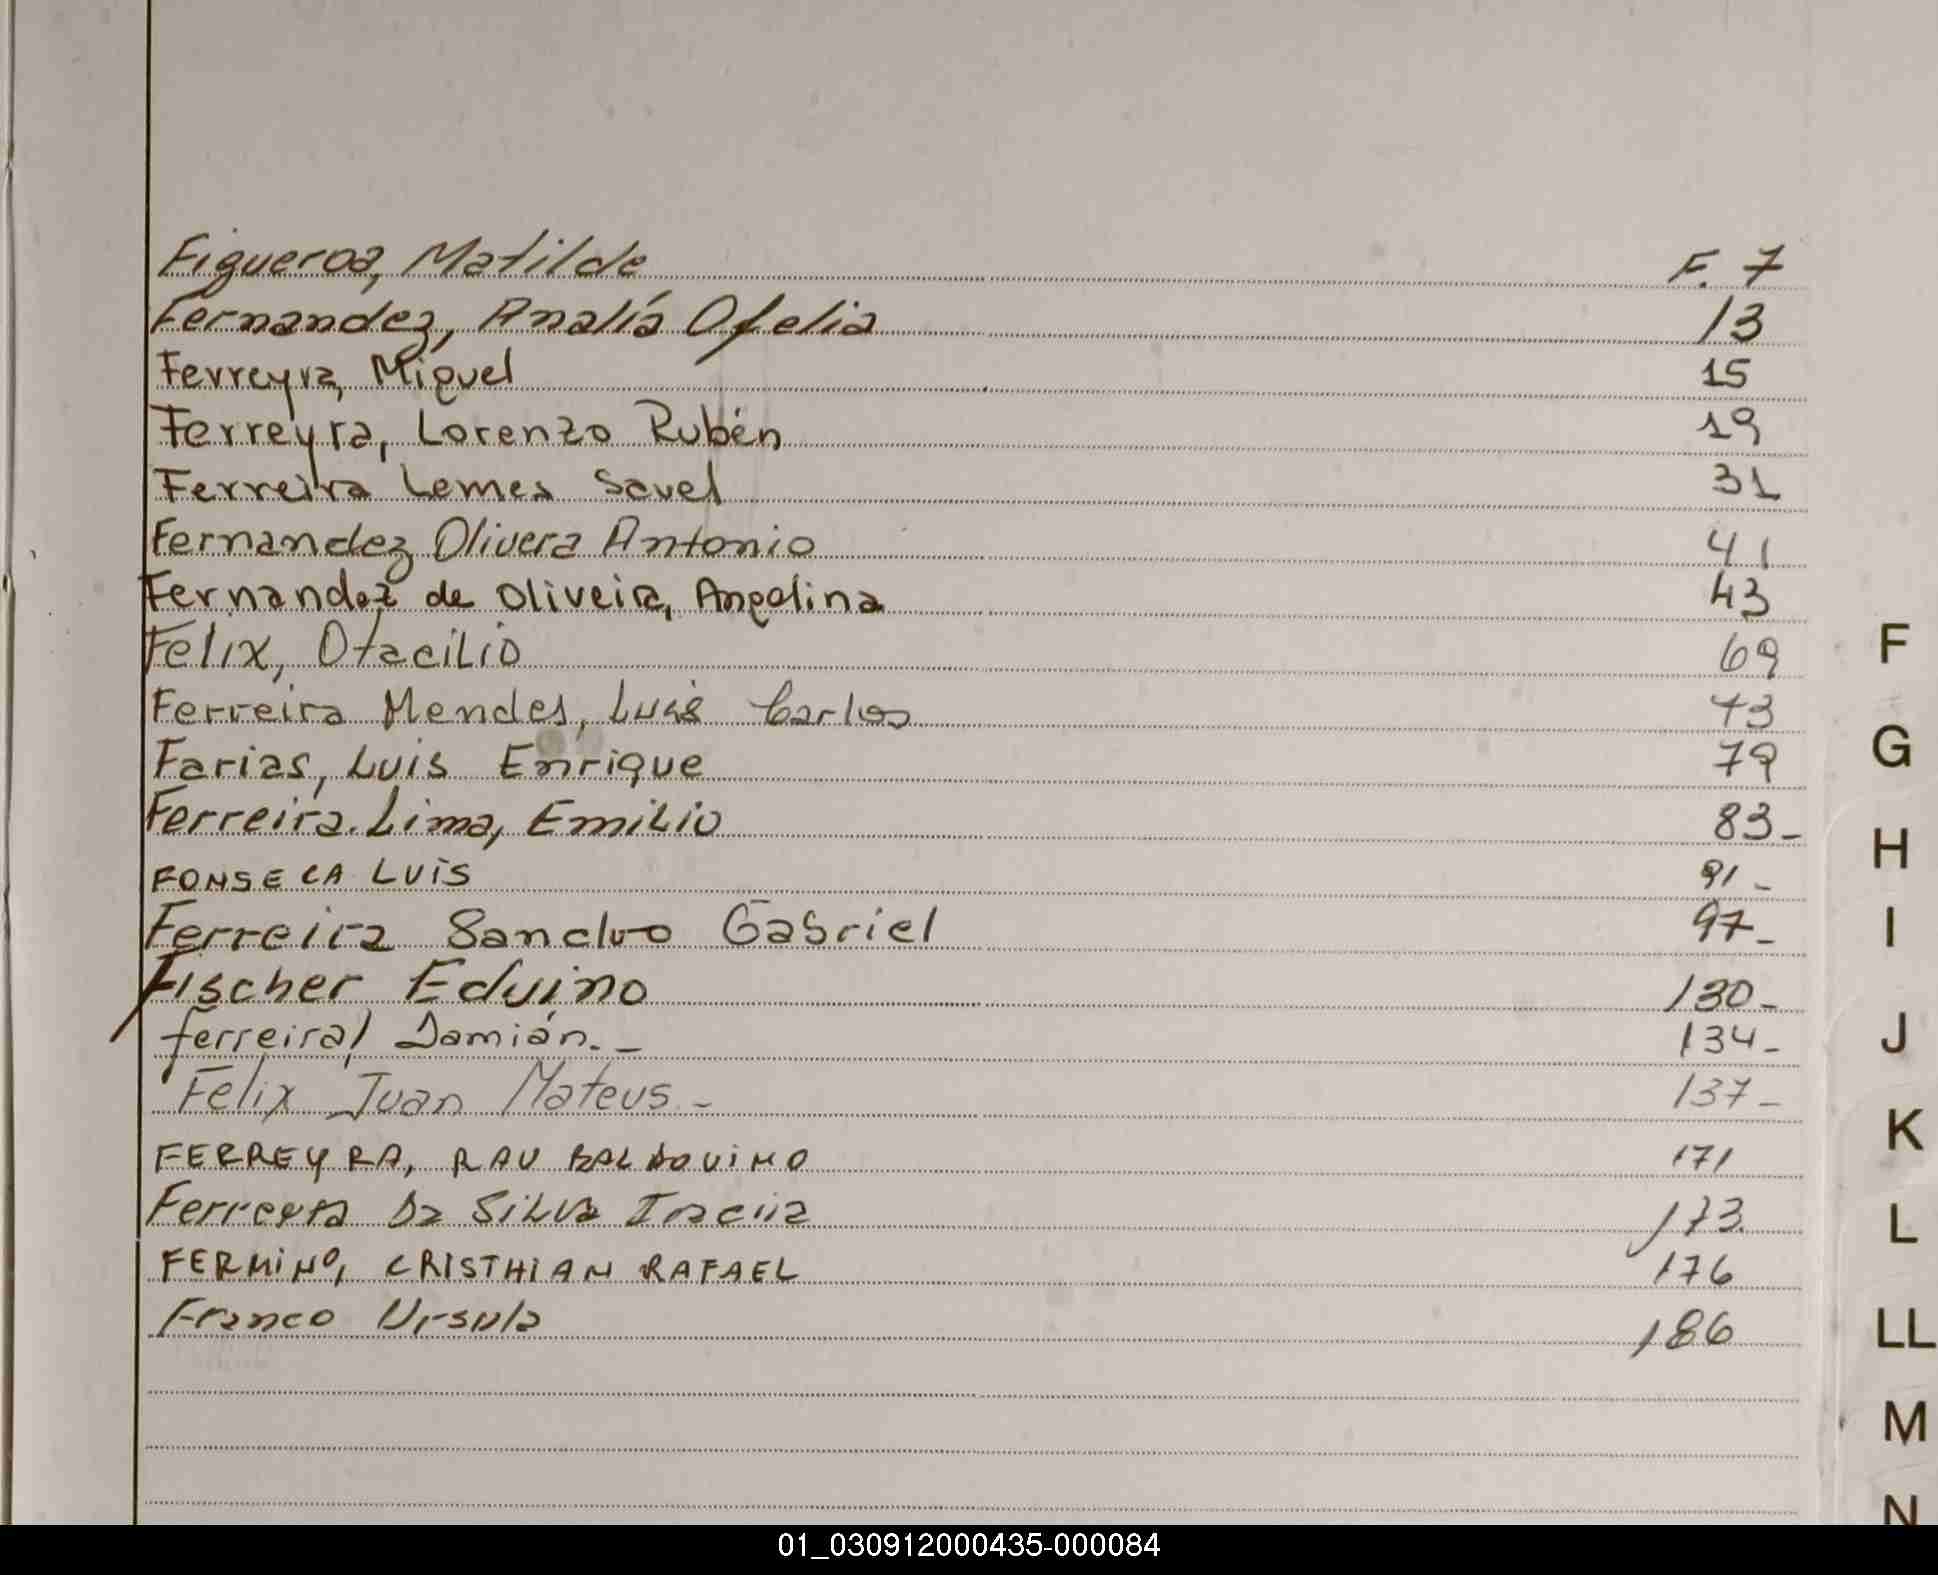 Figueroa, Matilde F. 7
Fernandez, Analía Ofelia 13
Ferreyra, Miguel 15
Ferreyra, Lorenzo Rubén 19
Ferreira Lemes Savel 31
Fernandez Olivera Antonio 41
Fernandez de Oliveira, Angelina 43
Felix, Otacilio 69
Ferreira Mendes, Luis Carlos 73
Farias, Luis Enrique 79
Ferreira Lima, Emilio 83-
FONSECA LUIS 91-
Ferreira Sandro Gabriel 97-
Fischer Eduino 130-
ferreira, Damián.- 134-
Felix Juan Mateus.- 137-
FERREYRA, RAU BALDOUINO 171
Ferreyra Da Silva 173
FERMINO, CRISTHIAN RAFAEL 176
Franco Ursula 186
F
G
H
I
J
K
L
LL
M
N
01_030912000435-000084